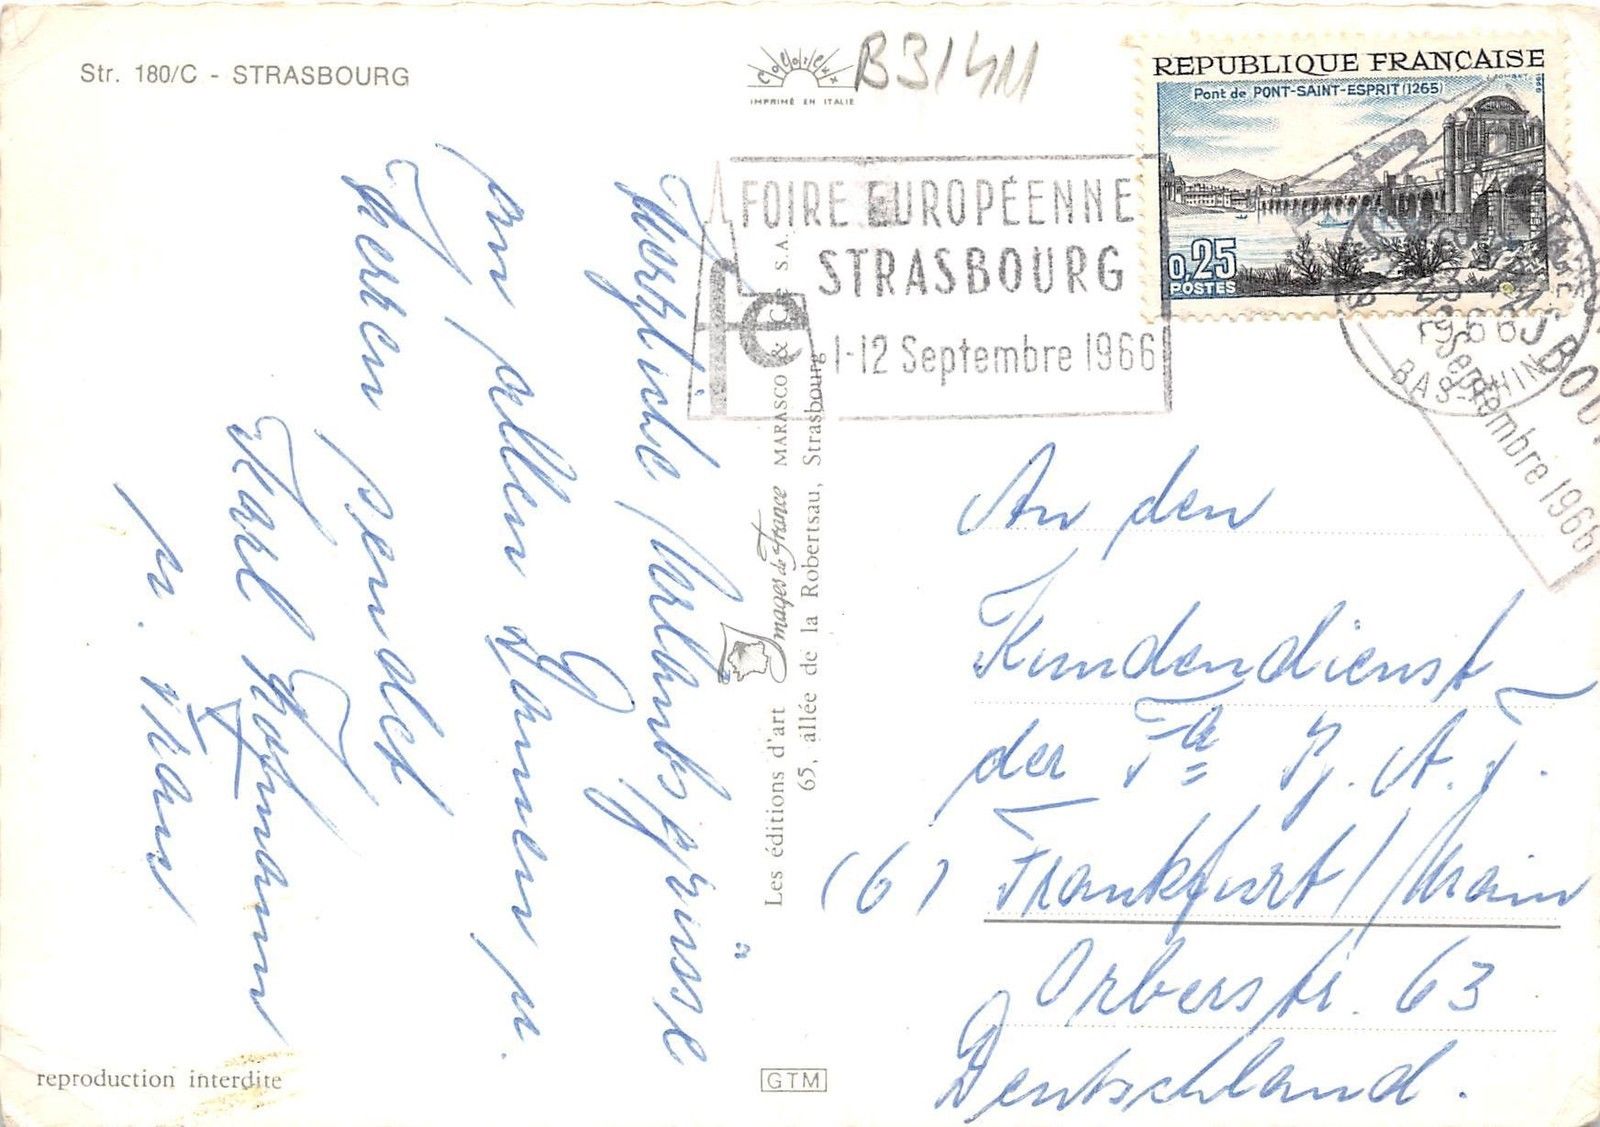 Str. 180/C - STRASBOURG
Colorilux
IMPRIMÉ EN ITALIE
B31411
REPUBLIQUE FRANÇAISE
Pont de PONT-SAINT-ESPRIT (1265)
0,25
POSTES
FOIRE EUROPÉENNE
STRASBOURG
1-12 Septembre 1966
fe
BAS-RHIN
Septembre 1966
Herzliche Urlaubsgrüsse
an allen Damen u.
Herren sendet
Karl
u. Frau
Les éditions d'art Images de France MARASCO & Cie S.A.
65, allée de la Robertsau, Strasbourg
An den
Kundendienst
der Fa J. A. T.
(6) Frankfurt/Main
Orberstr. 63
Deutschland.
reproduction interdite
GTM